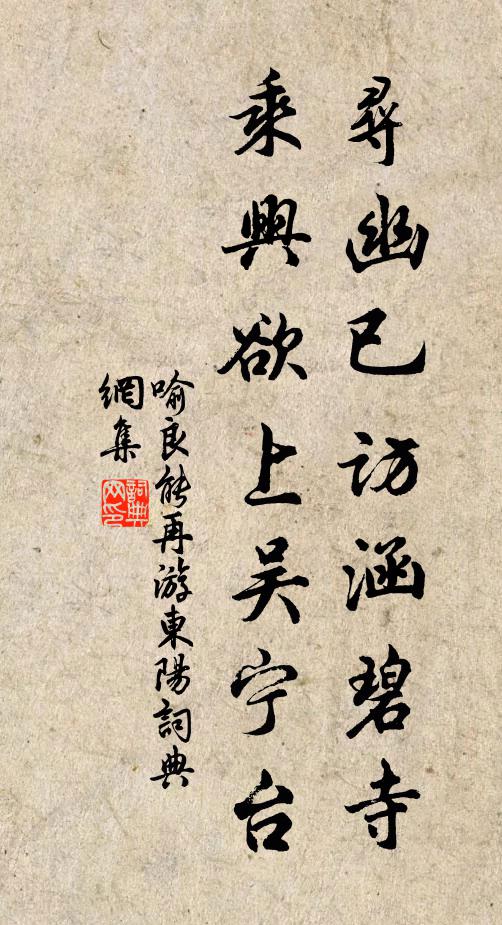 尋幽已访涵碧寺
乘興欲上吴宁台
喻良能再游東陽詞典
網集
詞典网印